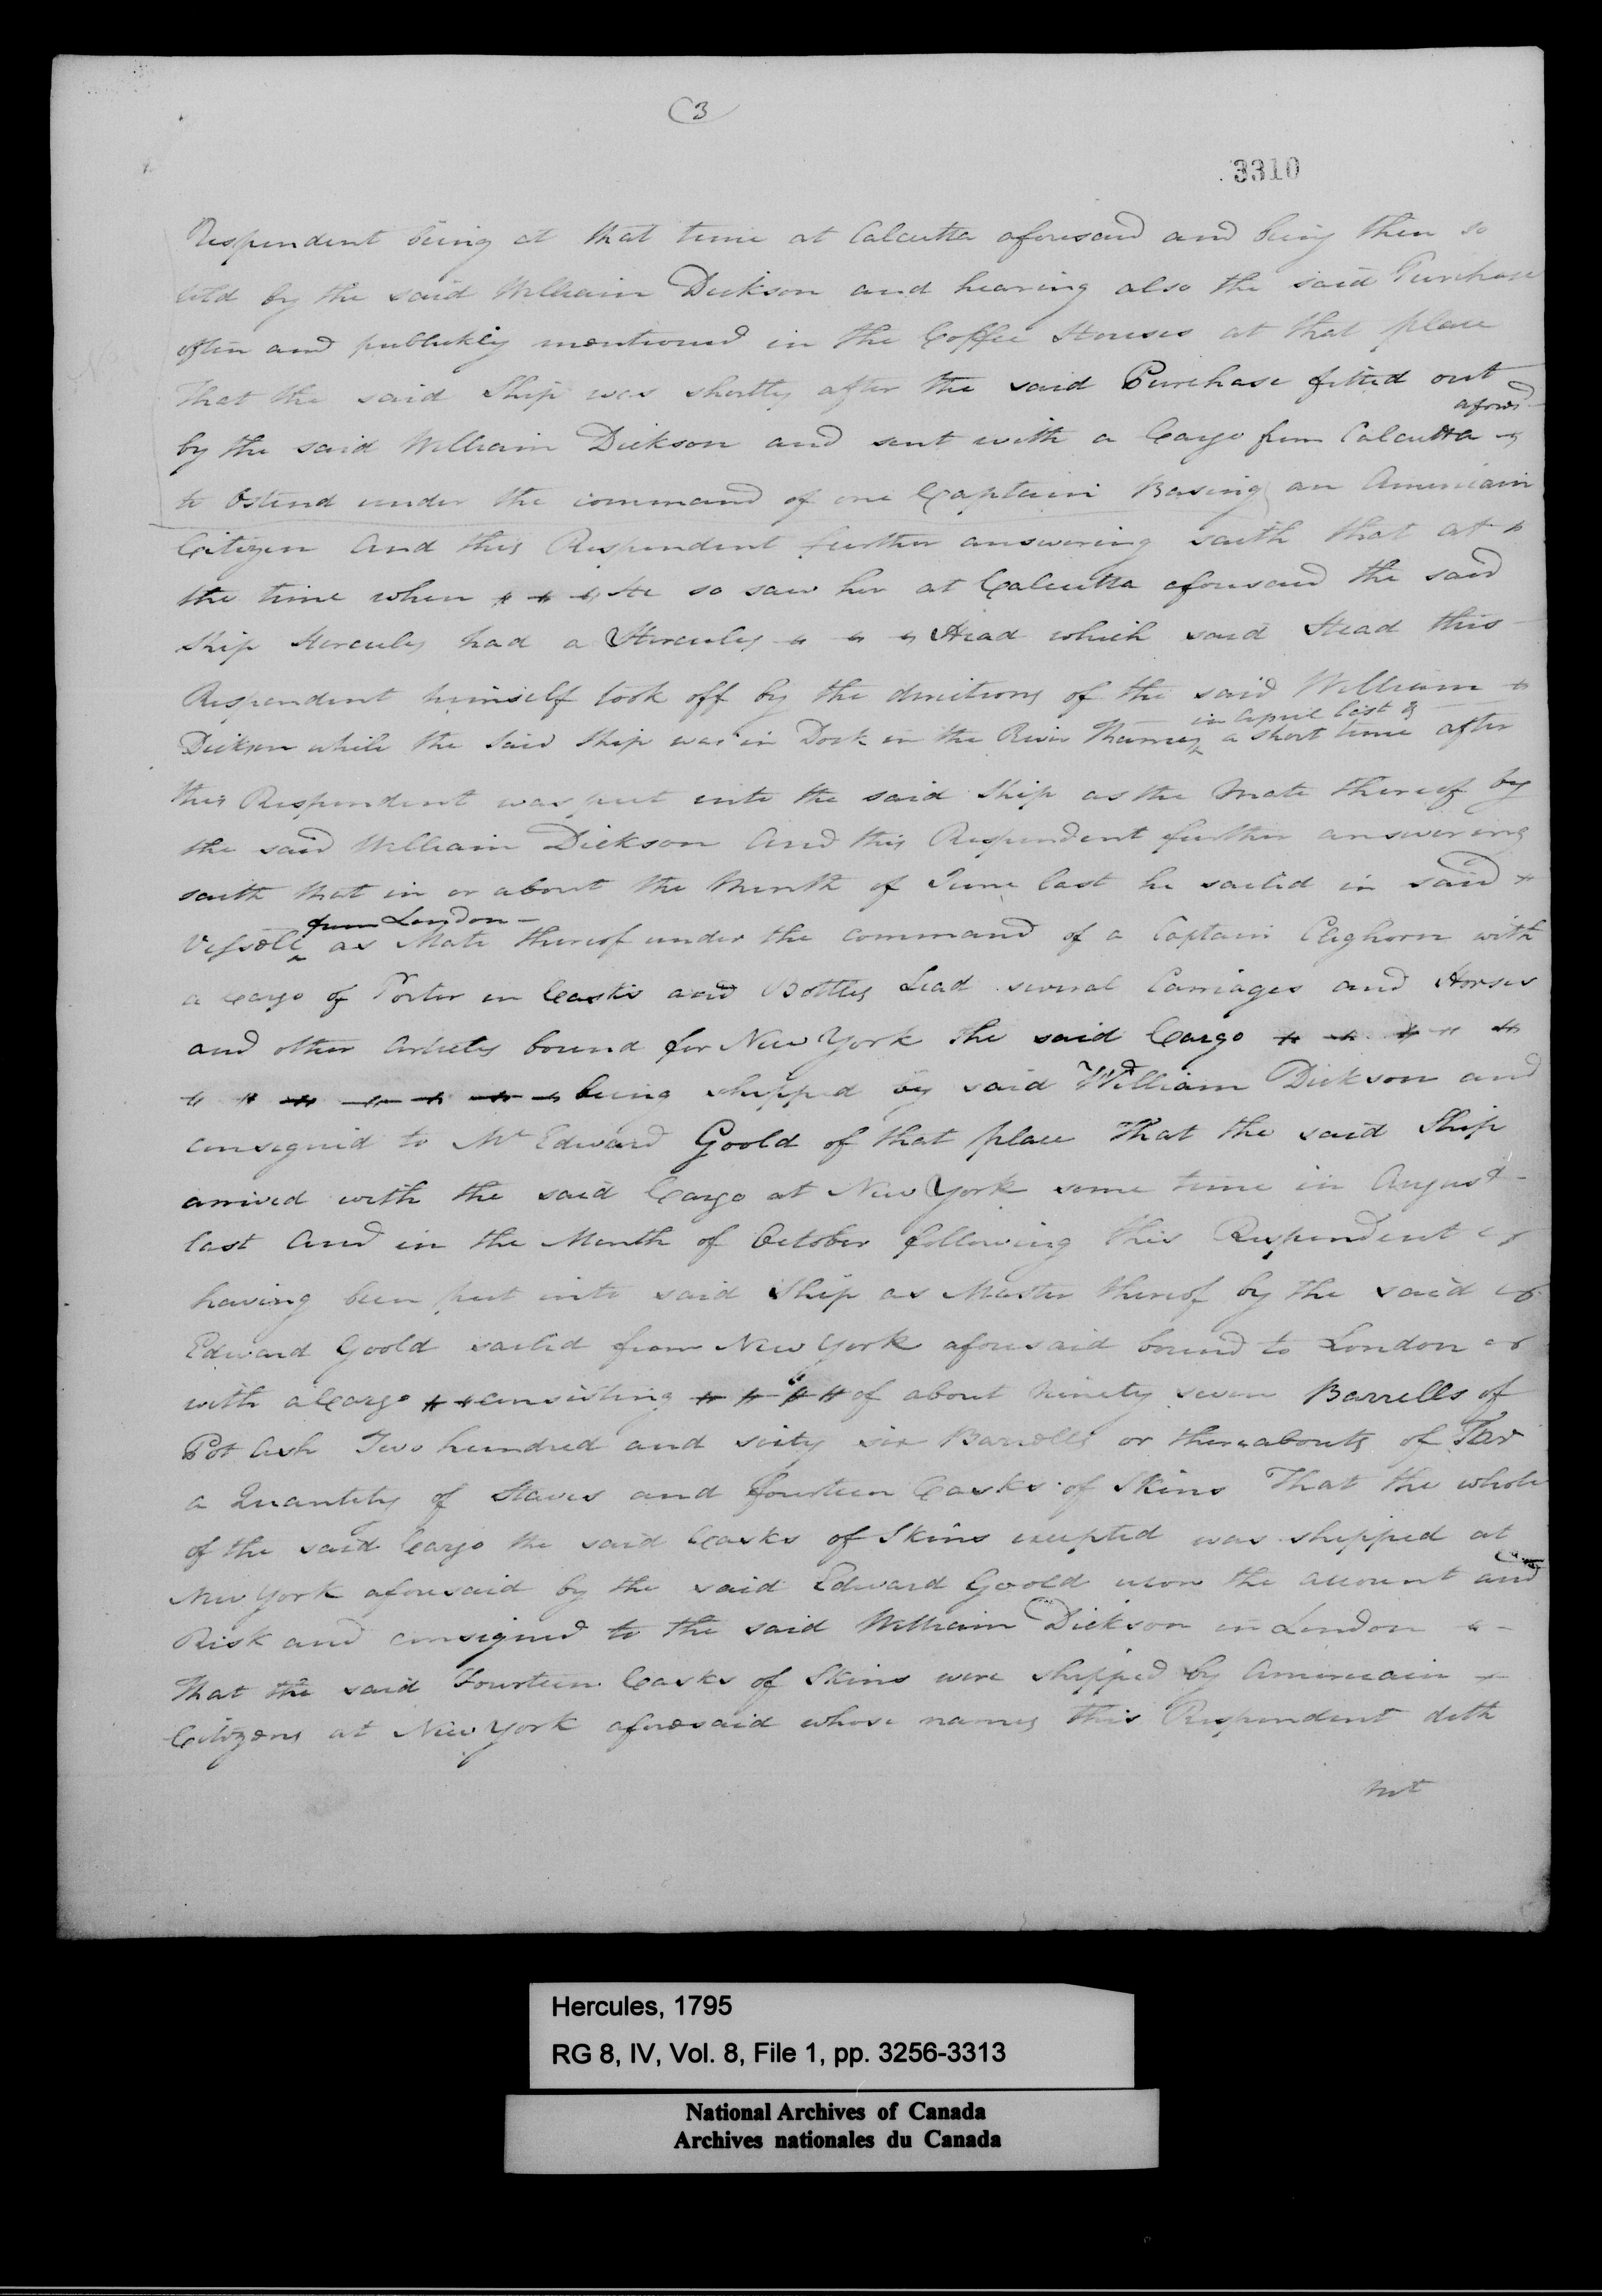 3
3310
Respondent being at that time at Calcutta aforesaid and being then so
told by the said William Dickson and hearing also the said Purchase
often and publickly mentioned in the Coffee Houses at that place
That the said Ship was shortly after the said Purchase fitted out
aforesd
by the said William Dickson and sent with a Cargo from Calcutta
to Ostend under the command of one Captain Basing an Americain
Citizen And this Respondent further answering saith that at
the time when He so saw her at Calcutta aforesaid the said
Ship Hercules had a Hercules Head which said Head this
Respondent himself took off by the directions of the said William
in April last &
Dickson while the said Ship was in Dock in the River Thames a short time after
this Respondent was put into the said Ship as the Mate thereof by
the said William Dickson And this Respondent further answering
saith that in or about the Month of June last he sailed in said
from London
Vessell as Mate thereof under the command of a Captain Cleghorn with
a Cargo of Porter in Casks and Bottles Lead several Carriages and Horses
and other Articles bound for New York the said Cargo
being shipped by said William Dickson and
consigned to Mr Edward Goold of that place That the said Ship
arrived with the said Cargo at New York some time in August
last And in the Month of October following this Respondent
having been put into said Ship as Master thereof by the said
Edward Goold sailed from New York aforesaid bound to London
with a Cargo consisting of about Ninety seven Barrells of
Pot Ash Two hundred and sixty six Barrells or thereabouts of Tar
a Quantity of Staves and fourteen Casks of Skins That the whole
of the said Cargo the said Casks of Skins excepted was shipped at
New York aforesaid by the said Edward Goold upon the account and
Risk and consigned to the said William Dickson in London
That the said Fourteen Casks of Skins were shipped by Americain
Citizens at New York aforesaid whose names this Respondent doth
not
Hercules, 1795
RG 8, IV, Vol. 8, File 1, pp. 3256-3313
National Archives of Canada
Archives nationales du Canada